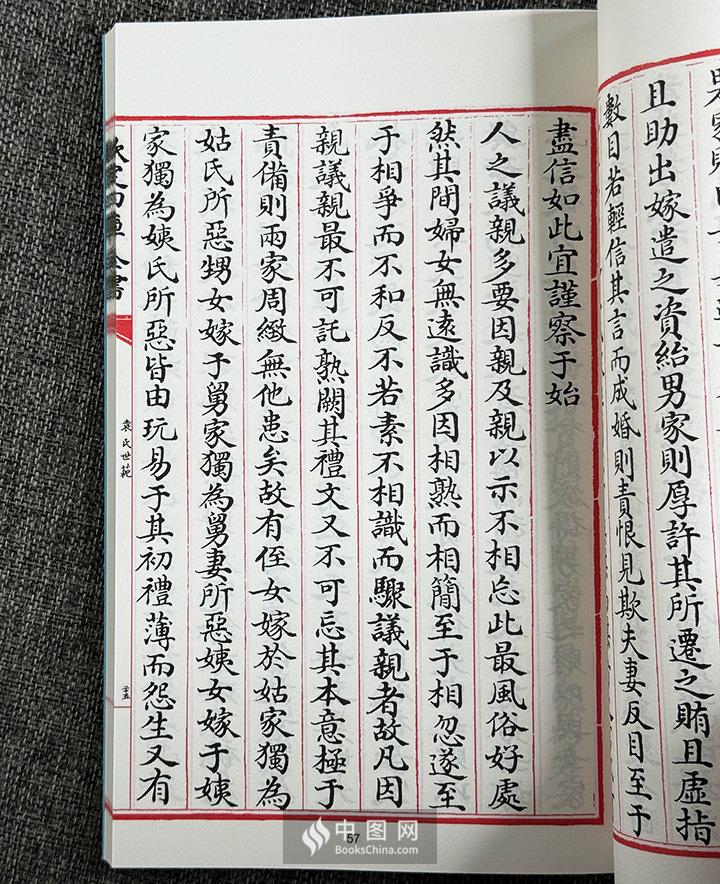 且助出嫁遣之資紿男家則厚許其所遷之賄且虛指
數目若輕信其言而成婚則責恨見欺夫妻反目至于
盡信如此宜謹察于始
人之議親多要因親及親以示不相忘此最風俗好處
然其間婦女無遠識多因相熟而相簡至于相忽遂至
于相爭而不和反不若素不相識而驟議親者故凡因
親議親最不可託熟闕其禮文又不可忘其本意極于
責備則兩家周緻無他患矣故有侄女嫁於姑家獨為
姑氏所惡甥女嫁于舅家獨為舅妻所惡姨女嫁于姨
家獨為姨氏所惡皆由玩易于其初禮薄而怨生又有
欽定四庫全書
袁氏世範
57
中图网
BooksChina.com